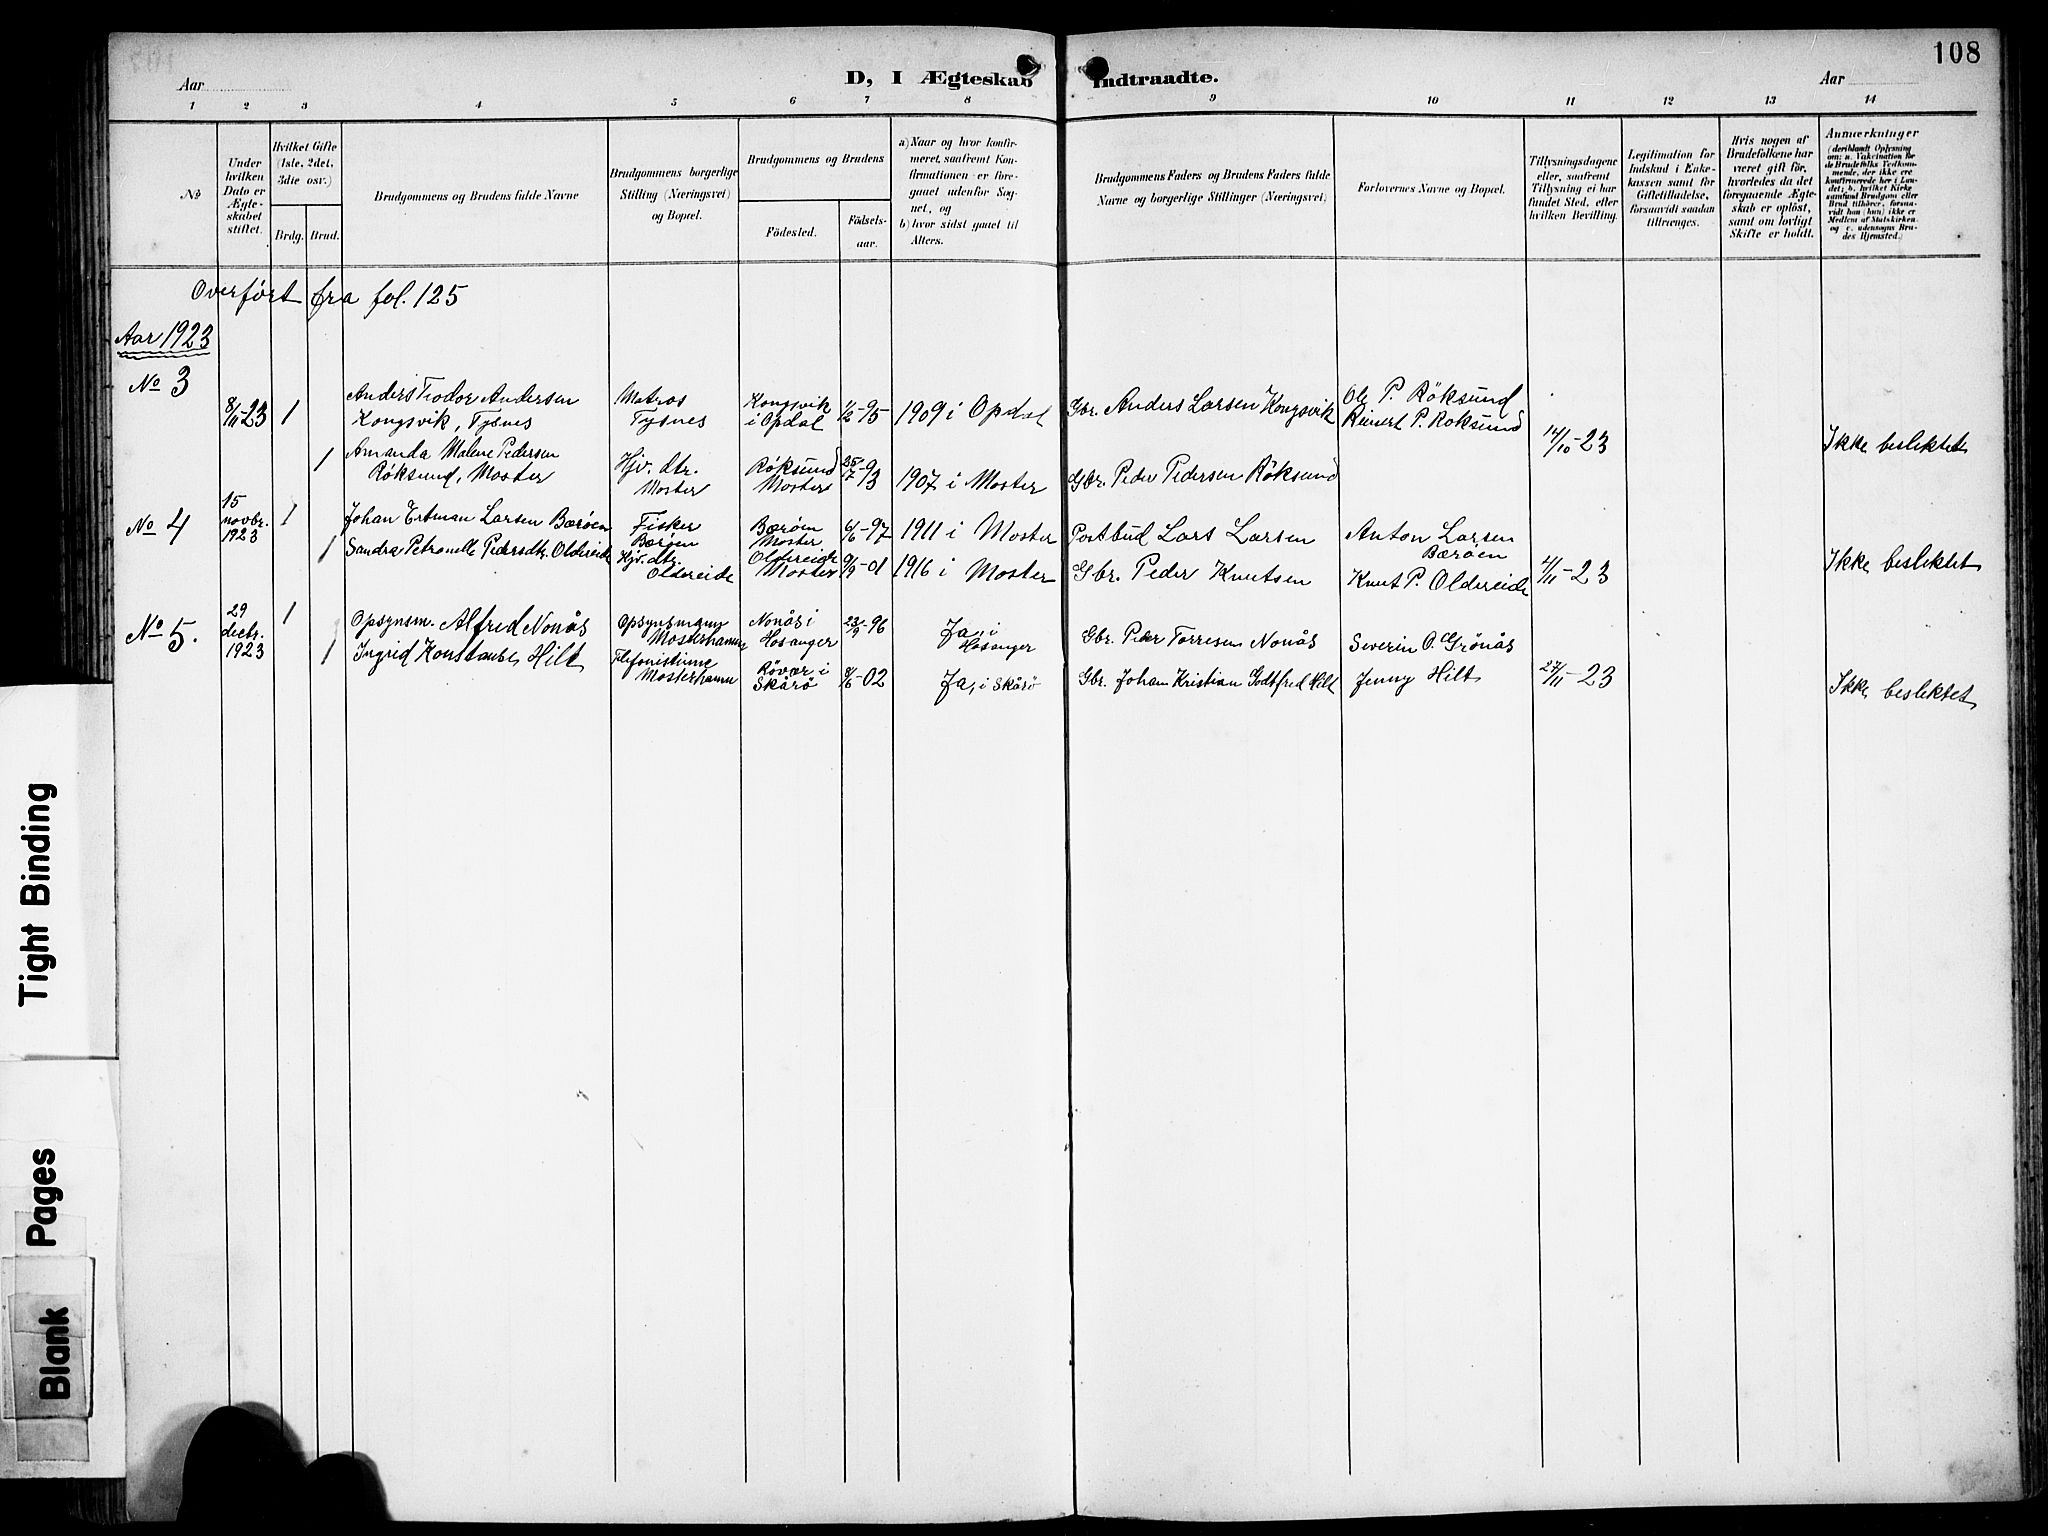 108
D, I Ægteskab Indtraadte.
Aar
Aar
1 2 3 4 5 6 7 8 9 10 11 12 13 14
No
Under hvilken Dato er Ægteskabet stiftet.
Hvilket Gifte (1ste, 2det, 3die osv.)
Brdg. Brud.
Brudgommens og Brudens fulde Navne
Brudgommens borgerlige Stilling (Næringsvei) og Bopæl.
Brudgommens og Brudens
Fødested.
Fødselsaar.
a) Naar og hvor konfirmeret, saafremt Konfirmationen er foregaaet udenfor Sognet, og
b) hvor sidst gaaet til Alters.
Brudgommens Faders og Brudens Faders fulde Navne og borgerlige Stillinger (Næringsvei)
Forlovernes Navne og Bopæl.
Tillysningsdagene eller, saafremt Tillysning ei har fundet Sted, efter hvilken Bevilling.
Legitimation for Indskud i Enkekassen samt for Giftetilladelse, forsaavidt saadan tiltrænges.
Hvis nogen af Brudefolkene har været gift før, hvorledes da det foregaaende Ægteskab er opløst, samt om lovligt Skifte er holdt.
Anmærkninger
(deriblandt Oplysning om: a. Vakcination for de Brudefolks Vedkommende, der ikke ere konfirmerede her i Landet; b. hvilket Kirkesamfund Brudgom eller Brud tilhører, forsaavidt han (hun) ikke er Medlem af Statskirken og c. udensogns Brudes Hjemsted.)
Overført fra fol. 125
Aar 1923
No 3
8/11-23 1 Anders Teodor Andersen Kongsvik, Tysnes
Matros Tysnes
Kongsvik i Opdal
1/2-95 1909 i Opdal
Gbr. Anders Larsen Kongsvik
Ole P. Röksund
Reinert P. Roksund
14/10-23
1 Amanda Malene Pedersen Røksund, Moster
Hjv. dtr. Moster
Røksund Moster
25/7-93 1907 i Moster
Gbr. Peder Pedersen Röksund
Ikke beslektet
No 4
15 novbr. 1923
1 Johan Ertman Larsen Bærøen
Fisker Bærøen
Bærøen Moster
6/6-97 1911 i Moster
Postbud Lars Larsen
Anton Larsen Bærøen
1 Sandra Petronelle Pedersdtr. Oldereide
Hjv. dtr. Oldereide
Oldereide Moster
9/9-01 1916 i Moster
Gbr. Peder Knutsen
Knut P. Oldereide
4/11-23
Ikke beslektet
No 5.
29 decbr. 1923
1 Opsynsm. Alfred Nonås
Opsynsmann Mosterhamn
Nonås i Hosanger
23/9-96 Ja, i Hosanger
Gbr. Peder Torresen Nonås
Severin O. Grönås
1 Ingrid Konstanse Hilt
Telefonistinne Mosterhamn
Røvær i Skårø
8/6-02 Ja, i Skårø
Gbr. Johan Kristian Godtfred Hilt
Jenny Hilt
27/11-23
Ikke beslektet
Tight Binding
Blank Pages